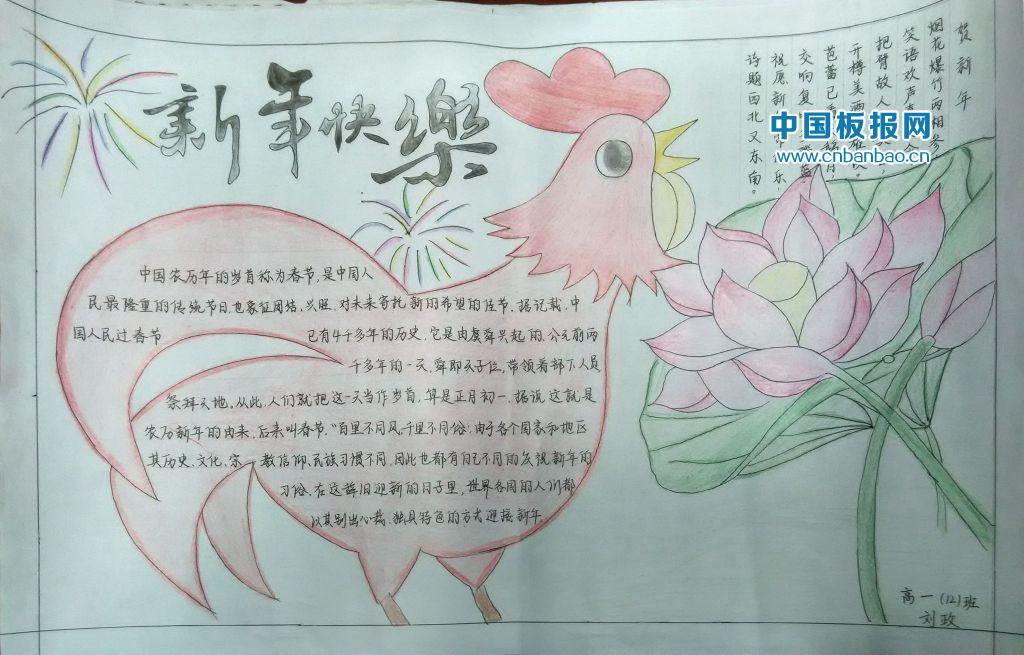 新年快樂
中国农历年的岁首称为春节，是中国人
民最隆重的传统节日，也象征团结，兴旺，对未来寄托新的希望的佳节，据记载，中
国人民过春节 已有4千多年的历史，它是由虞舜兴起的，公元前两
千多年的一天，舜即天子位，带领着部下人员
祭拜天地，从此，人们就把这一天当作岁首，算是正月初一，据说这就是
农历新年的由来，后来叫春节。"百里不同风，千里不同俗，由于各个国家和地区
其历史、文化、宗教信仰、民族习惯不同，因此也都有自己不同的庆祝新年的
习俗，在这辞旧迎新的日子里，世界各国的人们都
以其别出心裁、独具特色的方式迎接新年。
贺新年
烟花爆竹两相参
笑语欢声
把臂故人
开樽美酒
芭蕾已
交响复
祝愿新 乐，
诗题西北又东南。
中国板报网
www.cnbanbao.cn
高一(12)班
刘政